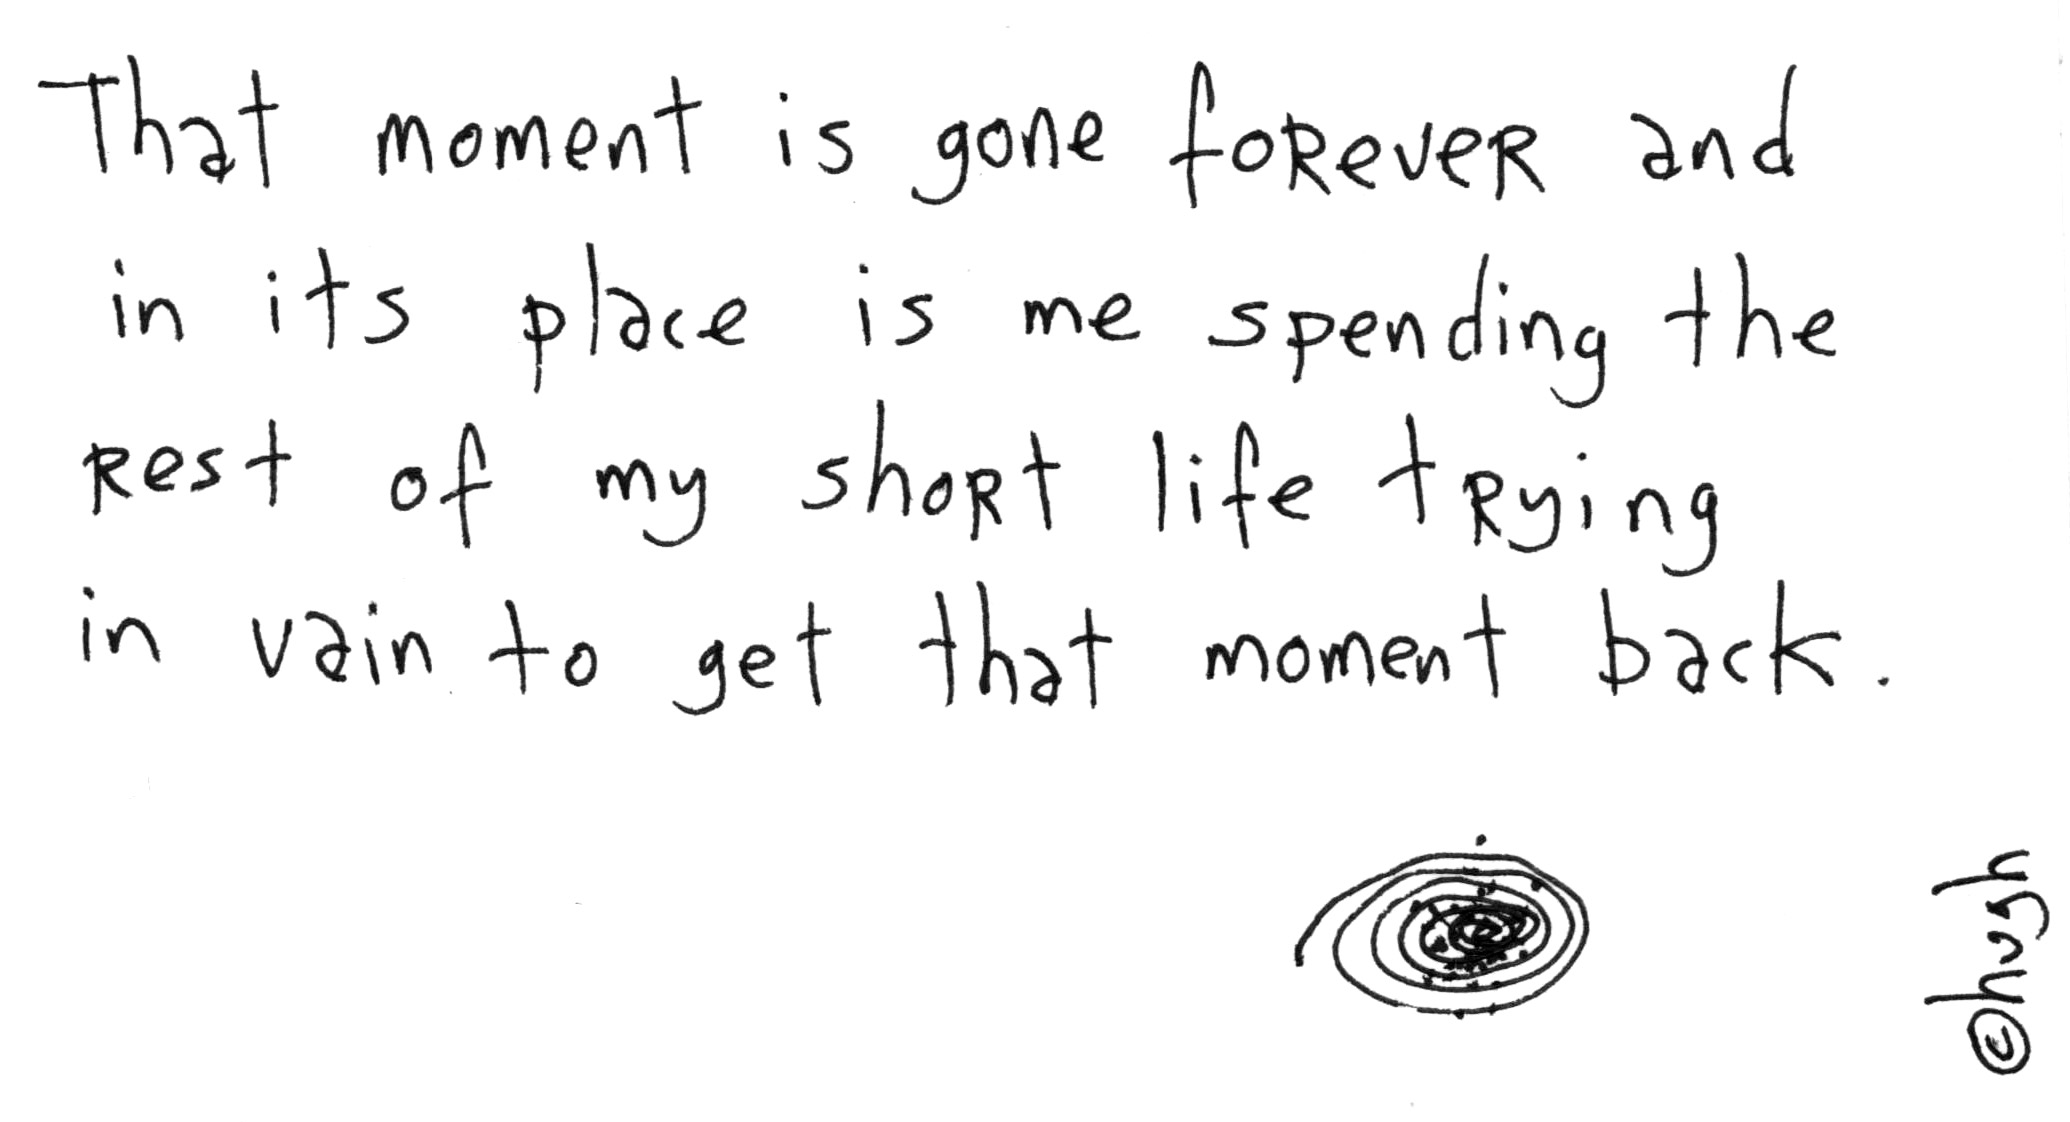 That moment is gone forever and
in its place is me spending the
rest of my short life trying
in vain to get that moment back.
©hugh